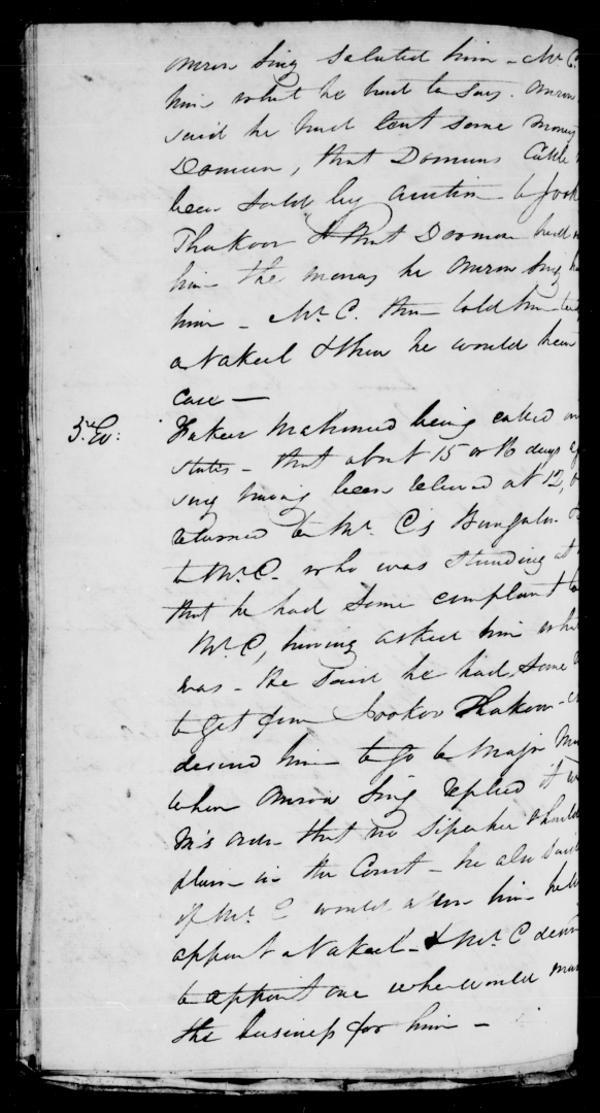 Omron Sing saluted him - Mr C.
him what he had to say. Omron
said he had lent some money
Domun, that Domuns Cattle
been sold by auction to Jook
Thakoor & that Dooman had
him the money he Omron Sing
him - Mr. C. then told him
a Vakeel & then he would hear
case —
3rd Ev: Fakeer Mahomed being called
states - that about 15 or 16 days
Sing having been relieved at 12,
returned to Mr. C's Bungalow.
to Mr. C. who was standing at
that he had some complaint to
Mr. C, having asked him what
was - He said he had some
to get from Jookoo Thakoor -
desired him to go to Major
when Omron Sing replied it
M's order that no Sipahee should
plain in the Court - he also said
if Mr. C would allow him he
appoint a Vakeel - & Mr. C desired
to appoint one who would
the business for him -